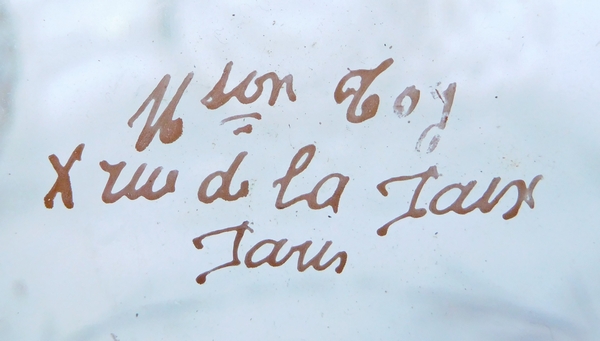 Mson Toy
X rue de la Paix
Paris